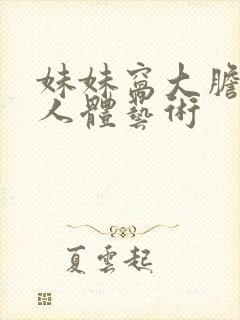 妹妹窩大膽
人體藝術
夏雲起